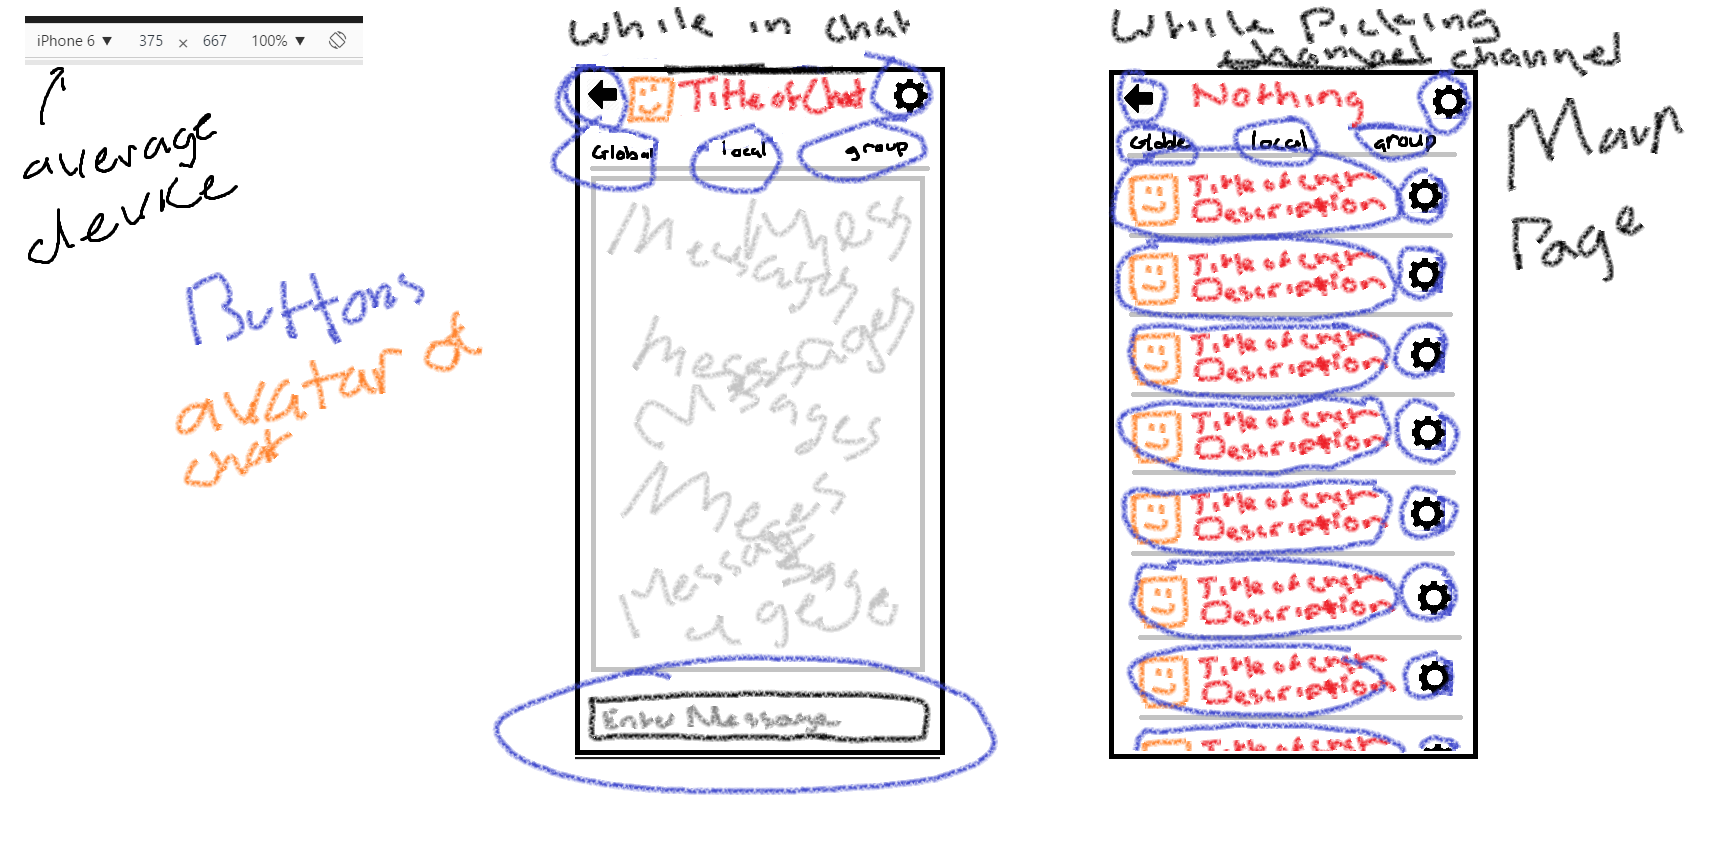 iPhone 6 ▼ 375 × 667 100% ▼
average
device
Buttons
avatar of
chat
While in chat
Title of Chat
Global local group
Messages
messages
Enter Message
While Picking
channel channel
Nothing
Globle local group
Title of Chat
Description
Title of Chat
Description
Title of Chat
Description
Title of Chat
Description
Title of Chat
Description
Title of Chat
Description
Title of Chat
Description
Title of Chat
Main
Page